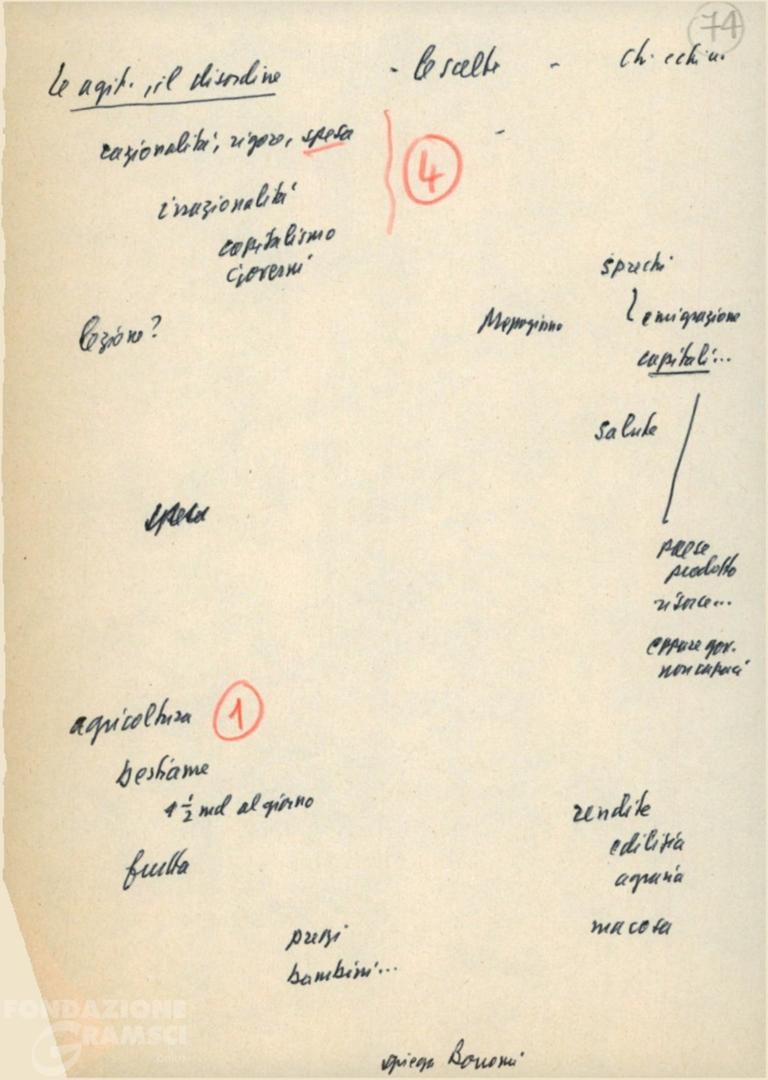 74
le agit., il disordine - le scelte - chi e chi no
razionalità, rigore, spesa
4
irrazionalità
capitalismo
Governi
sprechi
lezione?
Mezzogiorno
emigrazione
capitali...
salute
spesa
paese
prodotto
risorse...
eppure gov.
non capaci
agricoltura 1
bestiame
1 1/2 mld al giorno
rendite
edilizia
frutta
agraria
ma cosa
prezzi
bambini...
FONDAZIONE
GRAMSCI
online
spiega Bonomi